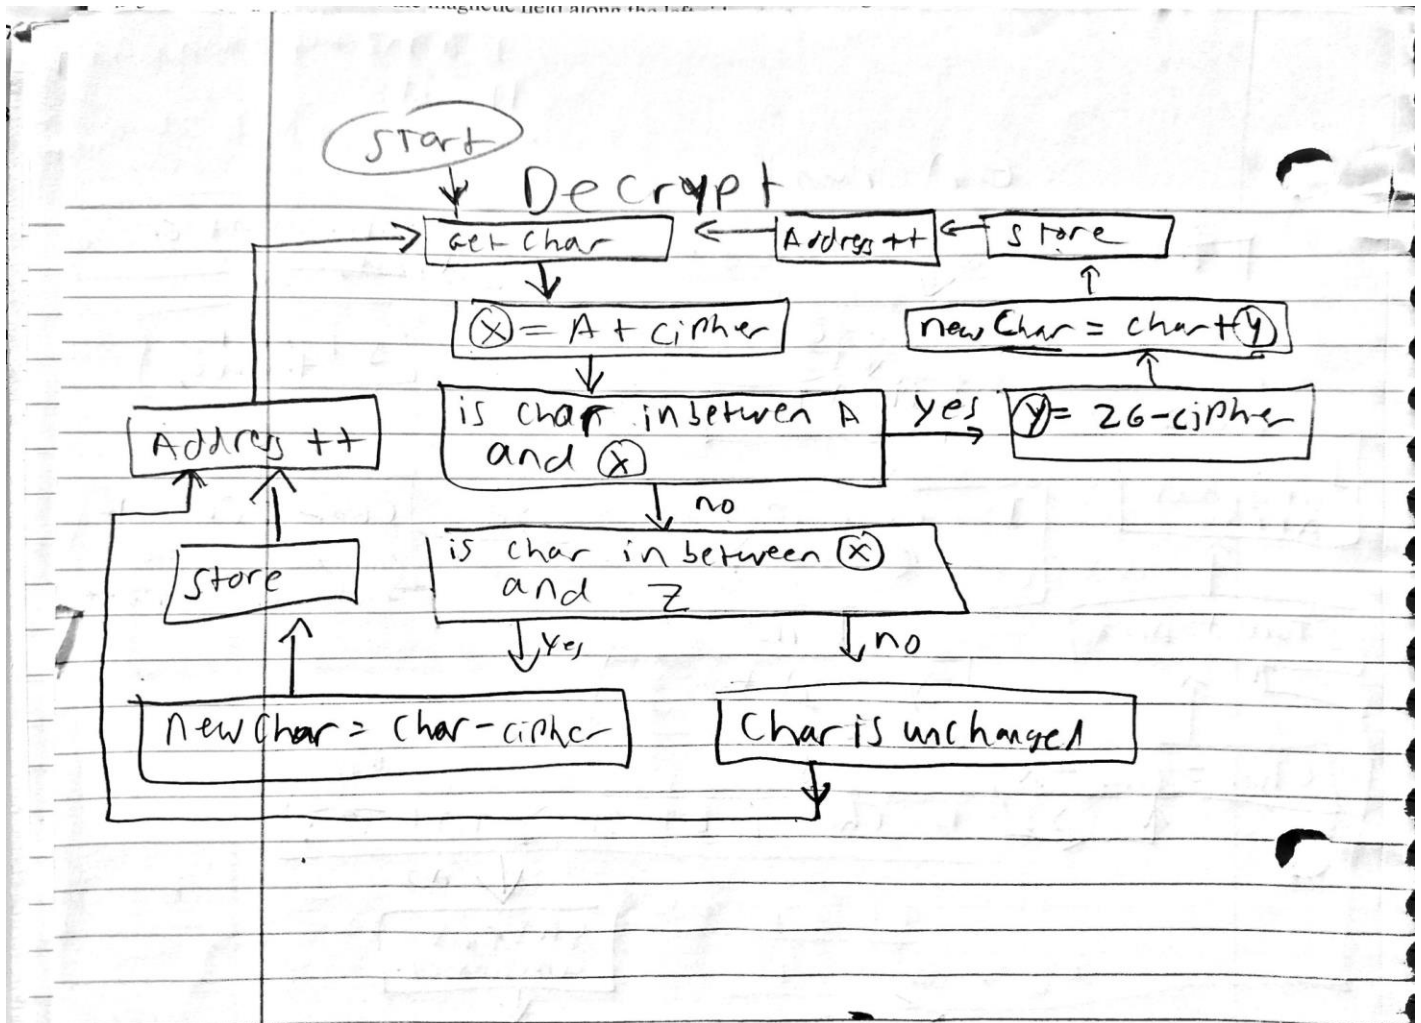 magnetic field along the left
Start
Decrypt
Get Char
Address ++
Store
X = A + cipher
new Char = char + y
is char inbetween A
and X
yes
y = 26 - cipher
Address ++
no
is char in between X
and Z
Store
yes
no
new Char = Char - cipher
Char is unchanged